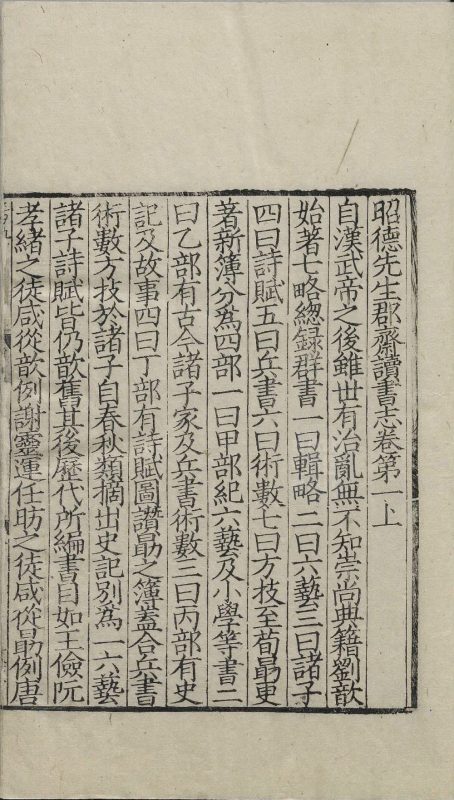 昭德先生郡齋讀書志卷第一上
自漢武帝之後雖世有治亂無不知崇尚典籍劉歆
始著七略總録群書一曰輯略二曰六藝三曰諸子
四曰詩賦五曰兵書六曰術數七曰方技至荀勗更
著新簿分爲四部一曰甲部紀六藝及小學等書二
曰乙部有古今諸子家及兵書術數三曰丙部有史
記及故事四曰丁部有詩賦圖讚勗之簿蓋合兵書
術數方技於諸子自春秋類摘出史記别爲一六藝
諸子詩賦皆仍歆舊其後歷代所編書目如王儉阮
孝緒之徒咸從歆例謝靈運任昉之徒咸從勗例唐